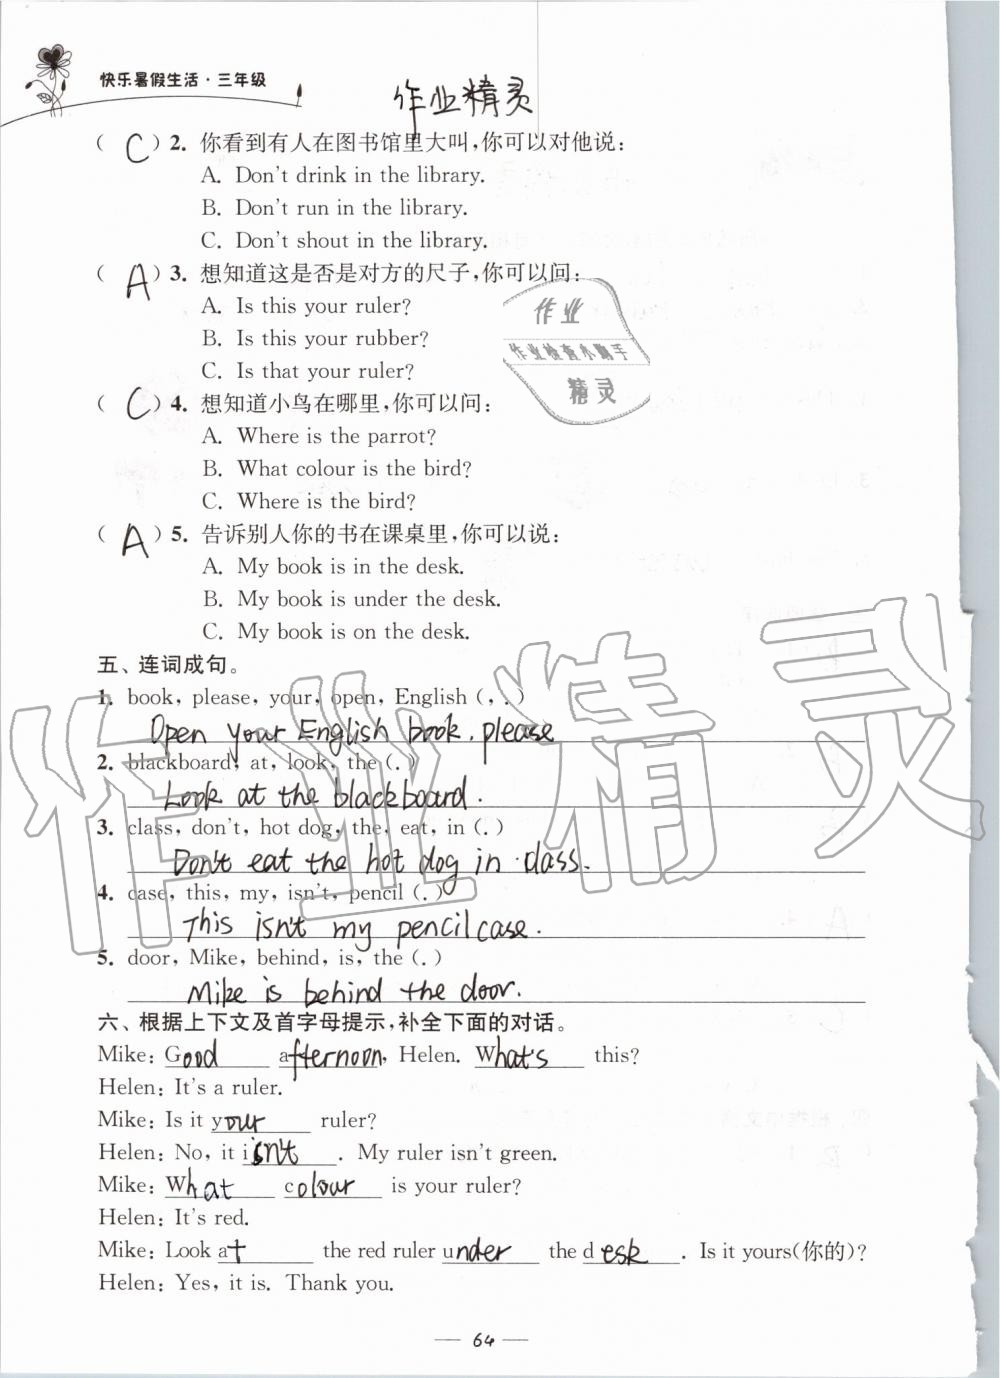 快乐暑假生活·三年级
作业精灵
( C ) 2. 你看到有人在图书馆里大叫,你可以对他说:
A. Don't drink in the library.
B. Don't run in the library.
C. Don't shout in the library.
( A ) 3. 想知道这是否是对方的尺子,你可以问:
A. Is this your ruler?
B. Is this your rubber?
C. Is that your ruler?
作业
作业检查小助手
精灵
( C ) 4. 想知道小鸟在哪里,你可以问:
A. Where is the parrot?
B. What colour is the bird?
C. Where is the bird?
( A ) 5. 告诉别人你的书在课桌里,你可以说:
A. My book is in the desk.
B. My book is under the desk.
C. My book is on the desk.
五、连词成句。
1. book, please, your, open, English (, .)
Open your English book, please
2. blackboard, at, look, the (.)
Look at the blackboard.
3. class, don't, hot dog, the, eat, in (.)
Don't eat the hot dog in class.
4. case, this, my, isn't, pencil (.)
This isn't my pencil case.
5. door, Mike, behind, is, the (.)
Mike is behind the door.
作业精灵
六、根据上下文及首字母提示,补全下面的对话。
Mike: Good afternoon, Helen. What's this?
Helen: It's a ruler.
Mike: Is it your ruler?
Helen: No, it isn't. My ruler isn't green.
Mike: What colour is your ruler?
Helen: It's red.
Mike: Look at the red ruler under the desk. Is it yours(你的)?
Helen: Yes, it is. Thank you.
— 64 —